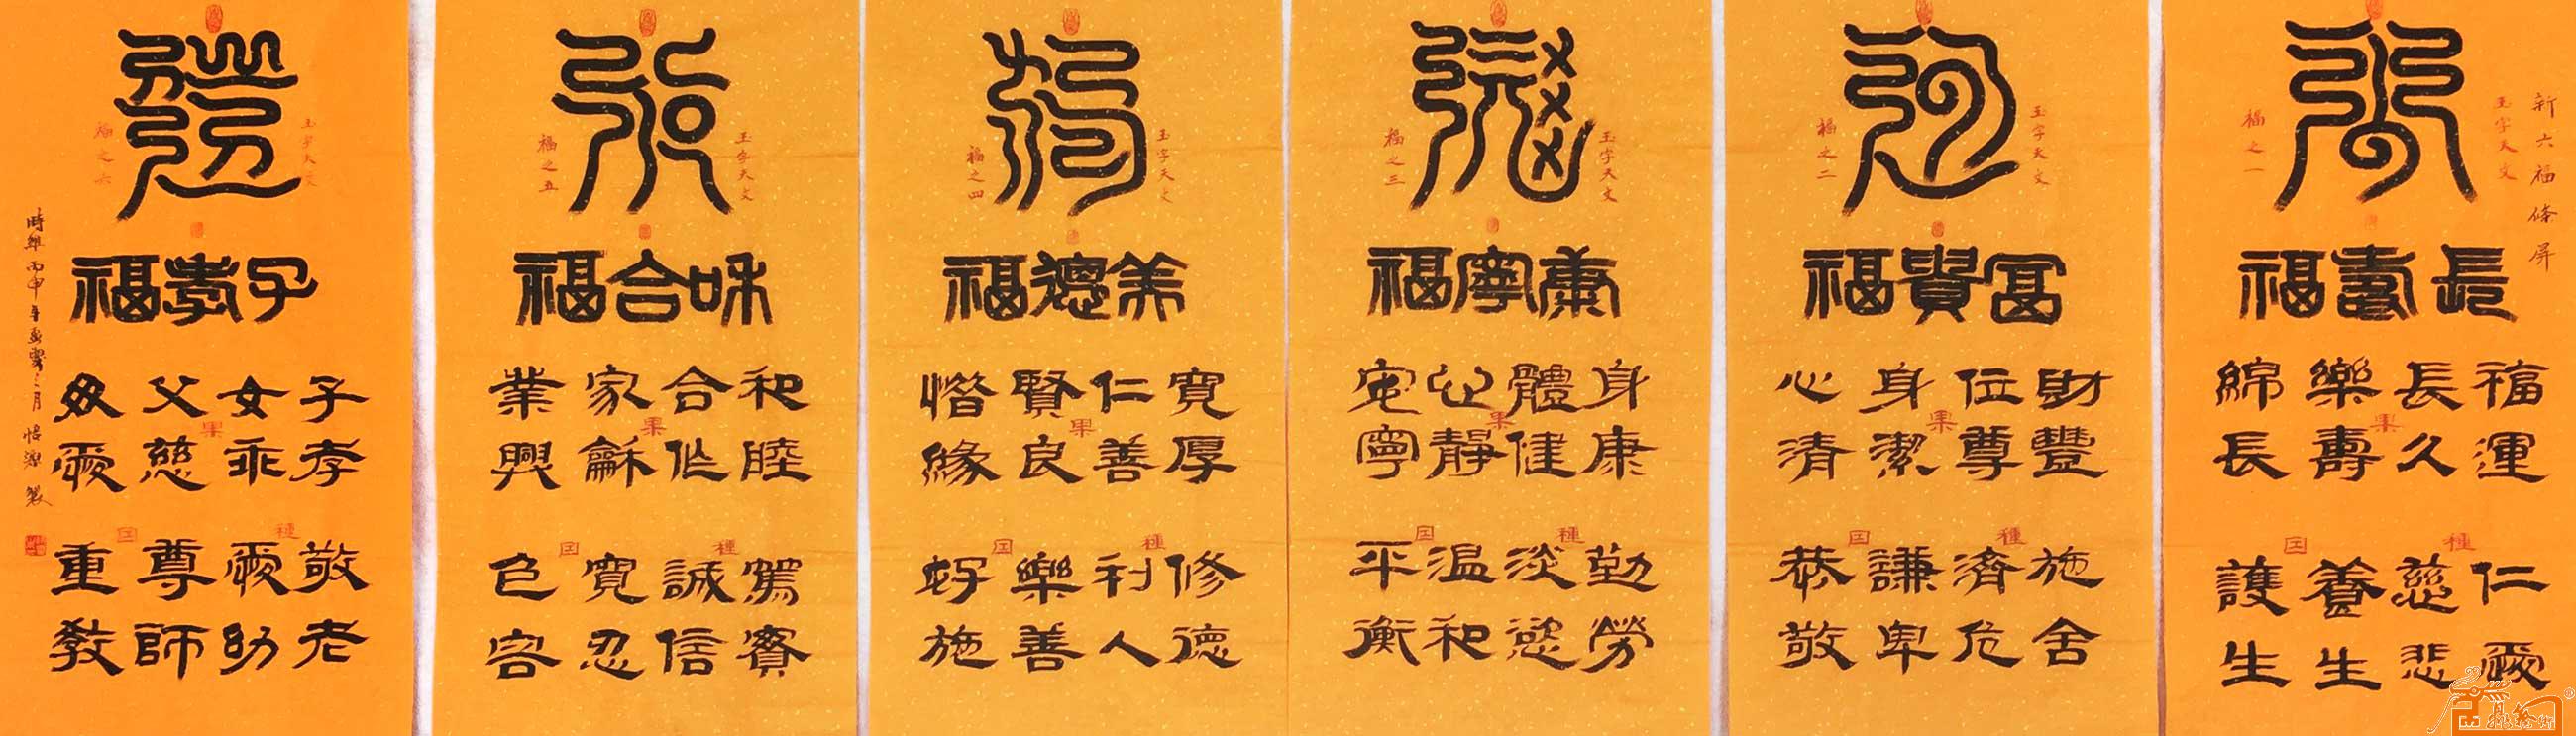 新六福條屏
玉字天文
福之一
長壽福
福運
長久
樂壽
綿長
果
仁愛
慈悲
養生
護生
種
因
玉字天文
福之二
富貴福
財豐
位尊
身潔
心清
果
施舍
濟危
謙卑
恭敬
種
因
玉字天文
福之三
康寧福
身康
體健
心靜
安寧
果
勤勞
淡慾
温和
平衡
種
因
玉字天文
福之四
美德福
寬厚
仁善
賢良
惜緣
果
修德
利人
樂善
好施
種
因
玉字天文
福之五
和合福
和睦
合作
家龢
業興
果
篤實
誠信
寬忍
包容
種
因
玉字天文
福之六
子孝福
子孝
女乖
父慈
母愛
果
敬老
愛幼
尊師
重教
種
因
時維丙申年